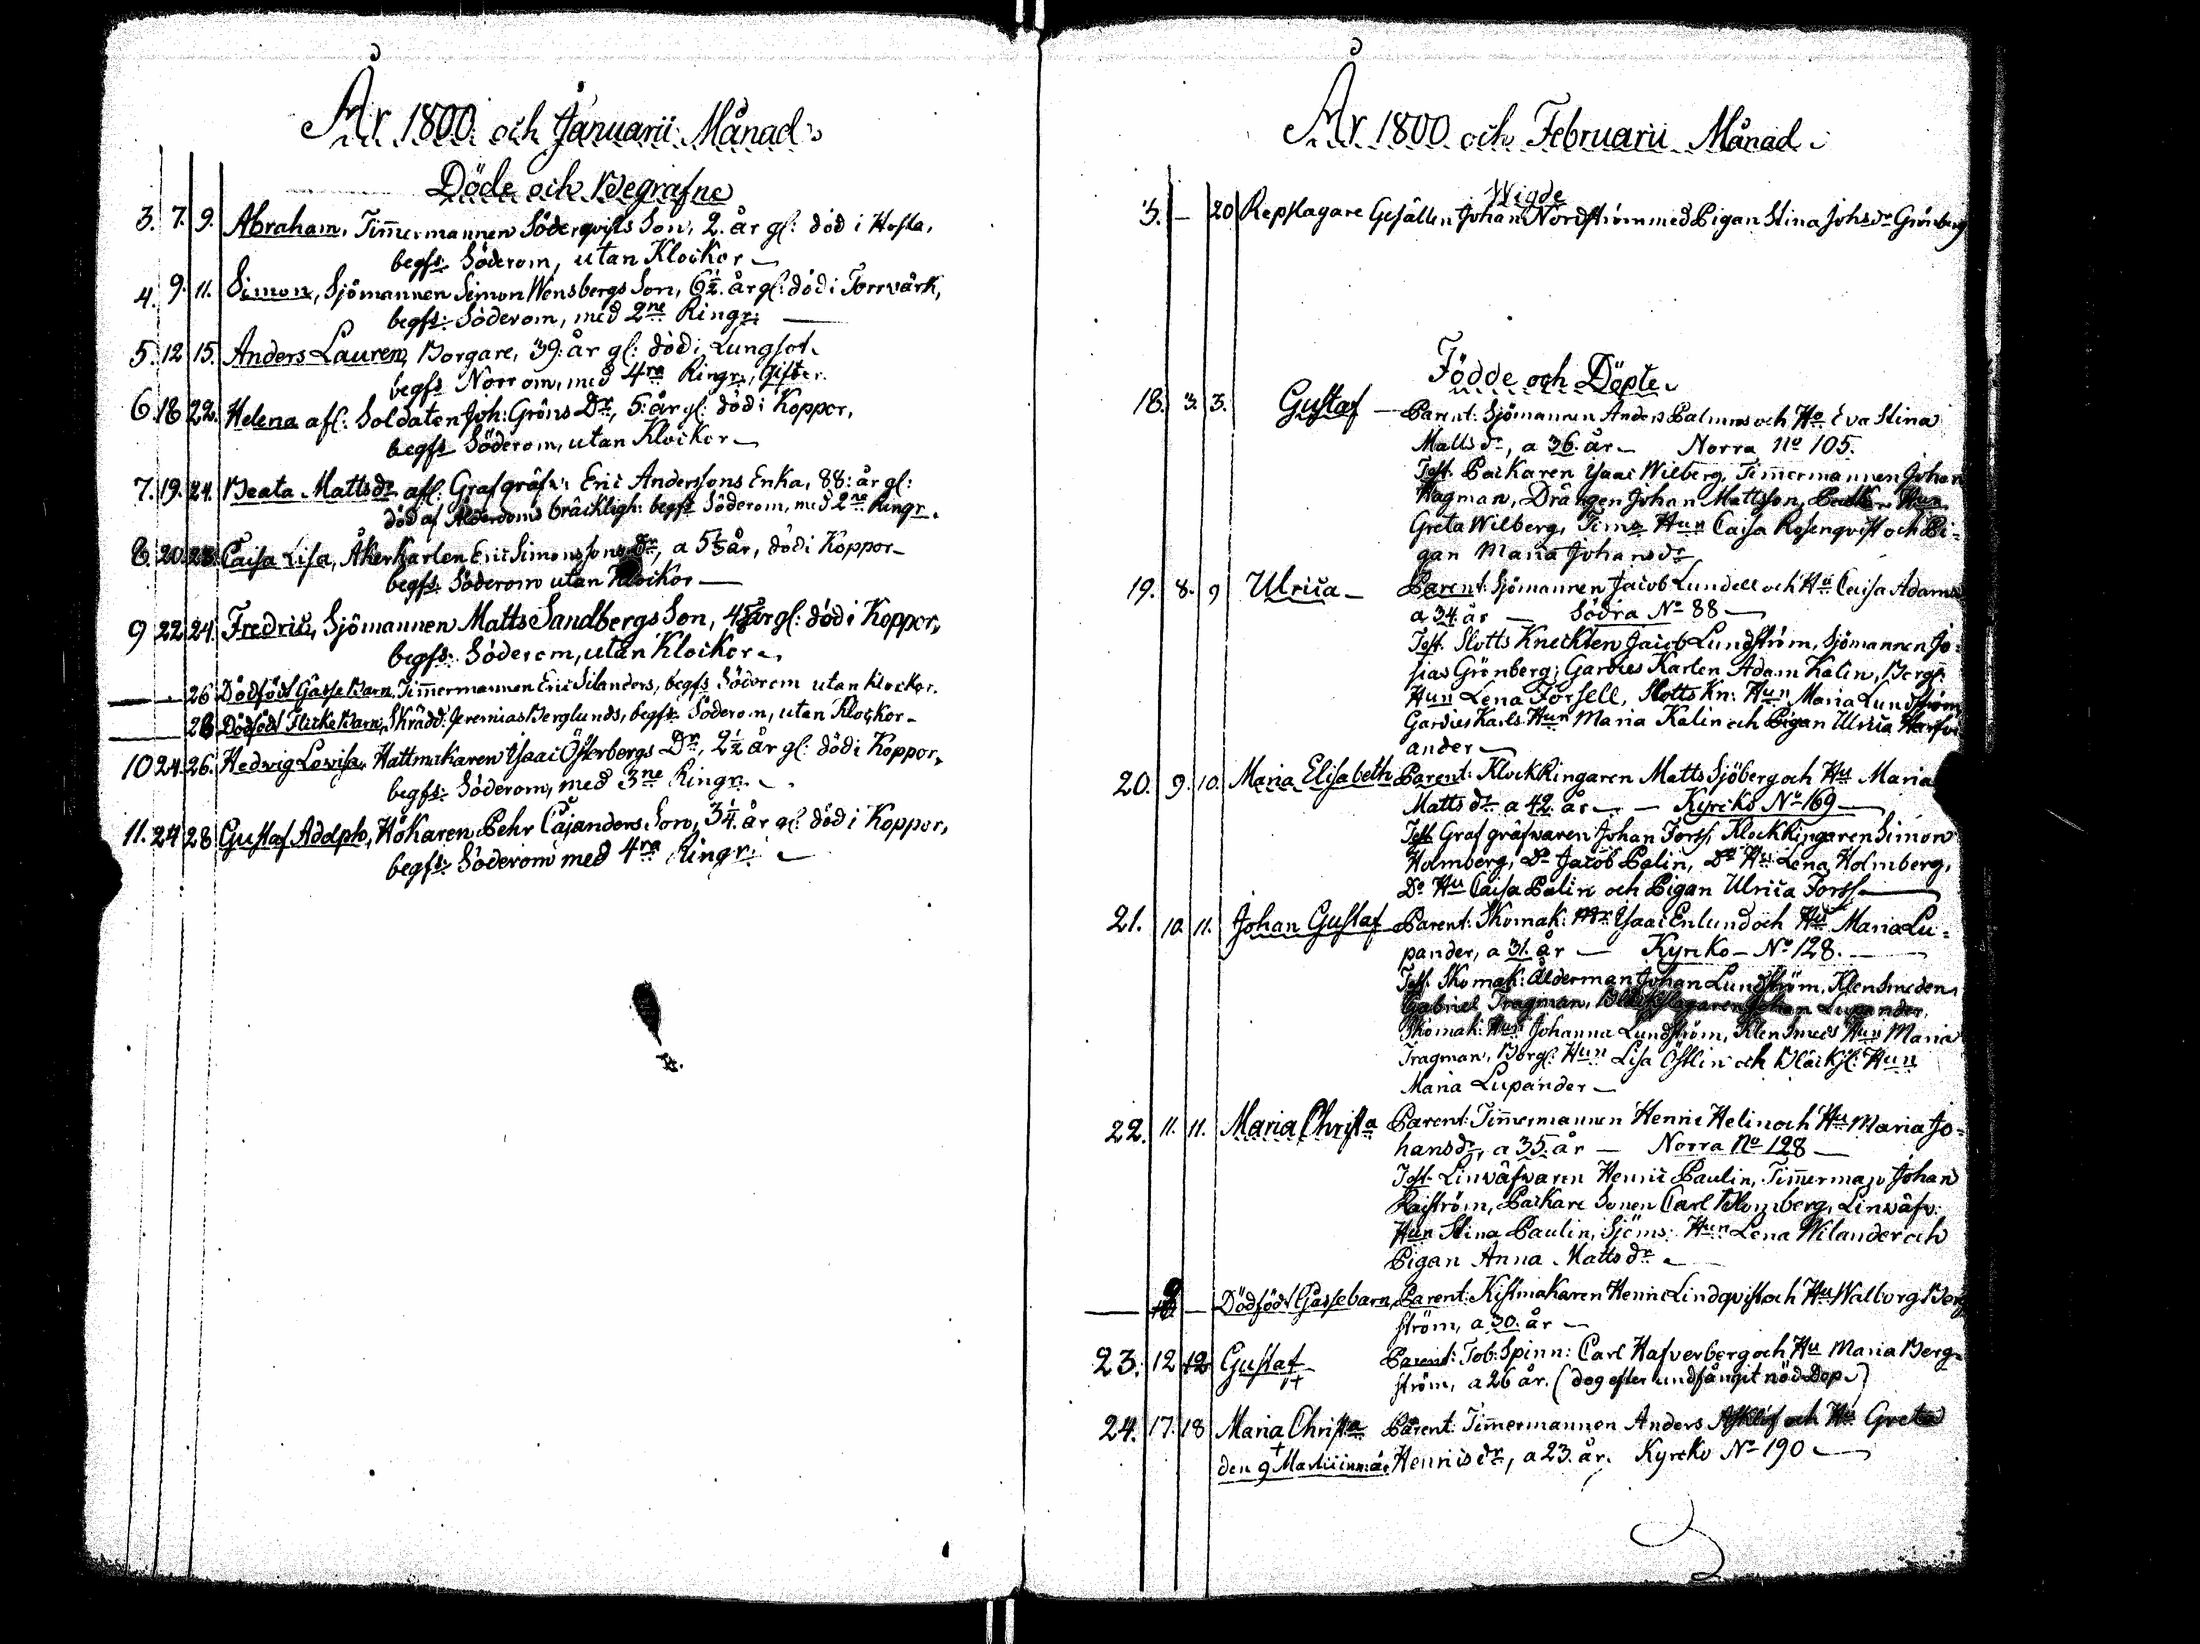 År 1800 och Januarii Månad
Döde och Begrafne
3. 7. 9. Abraham, Tim̄ermannen Söderqvists Son, 2. år gl: död i Hosta,
begfs. Söderom, utan Klockor
4. 9. 11. Simon, Sjömannen Simon Wensbergs Son, 6½. år gl: död i Torrvärk,
begfs: Söderom, med 2ne Ringr:
5. 12 15. Anders Lauren, Borgare, 39: år gl: död i Lungsot.
begfs Norr om, med 4ra Ringr, Gifter.
6. 18 22. Helena afl: Soldaten Joh: Gröns Dr, 5: år gl: död i Koppor,
begfs Söderom, utan Klockor
7. 19. 24. Beata Mattsdr afl: Grafgräfv: Eric Anderssons Enka, 88: år gl:
död af Ålderdoms bräckligh: begfs Söderom, med 2ne Ringr.
8. 20. 23. Caisa Lisa, Åkerkarlen Eric Simonssons Dr, a 5 år, död i Koppor
begfs. Söderom utan Klockor
9 22 24. Fredric, Sjömannen Matts Sandbergs Son, år gl: död i Koppor,
begfs: Söderom, utan Klockor
26 Dödfödt Gåsse Barn, Tim̄ermannen Eric Silanders, begfs Söderom utan Klockor.
28 Dödfödt Flicke Barn, Skrädd: Jeremias Berglunds, begfs. Söderom, utan Klockor
10 24. 26. Hedvig Lovisa, Hattmakaren Ysaac Österbergs Dr, 2½ år gl: död i Koppor,
begfs: Söderom, med 3ne Ringr.
11. 24 28 Gustaf Adolph, Hökaren Pehr Cajanders Son, 3¼. år gl: död i Koppor,
begfs. Söderom med 4ra Ringr:
År 1800 och Februarii Månad
Wigde
3. 20 Repslagare Gesällen Johan Nordström med Pigan Stina Johsdr Grönberg
Födde och Döpte
18. 3. 3. Gustaf Parent: Sjömannen Anders Palmros och Hu Eva Stina
Mattsdr, a 36. år Norra No 105.
Test. Packaren Ysaac Wilberg, Tim̄ermannen Johan
Hagman, Drängen Johan Mattsson, Hun
Greta Wilberg, Tims Hun Caisa Rosenqvist och Pi=
gan Maria Johansdr
19. 8. 9 Ulrica Parent: Sjömannen Jacob Lundell och Hu Caisa Adams
a 34 år Södra No 88
Test. Slotts Knechten Jacob Lundström, Sjömannen Jo=
sias Grönberg, Gardies Karlen Adam Kalin, Borgs
Hun Lena Forsell, Slotts Kn: Hun Maria Lundström
Gardies Karls Hun Maria Kalin och Pigan Ulrica
ander
20. 9. 10. Maria Elisabeth Parent: Klockringaren Matts Sjöberg och Hu Maria
Mattsdr a 42 år Kyrcko No 169
Test Grafgräfwaren Johan Forss, Klockringaren Simon
Holmberg, Do Jacob Palin, Do Hu Lena Holmberg,
Do Hu Caisa Palin och Pigan Ulrica Forss
21. 10. 11. Johan Gustaf Parent: Skomak: Ysaac Enlund och Hu Maria Lu=
pander, a 31. år Kyrcko No 128.
Test. Skomak: Ålderman Johan Lundström, Klensmeden
Gabriel Tragman, Johan Lupander,
Skomak: Hun Johanna Lundström, Klensmeds Hun Maria
Tragman, Borgl: Hun Lisa Östlin och Bläcksl: Hun
Maria Lupander
22. 11. 11. Maria Christa Parent: Tim̄ermannen Henric Helin och Hu Maria Jo=
hansdr, a 35. år Norra No 128
Test. Linwäfvaren Henric Paulin, Tim̄erman Johan
Packare Sonen Carl Blomberg, Linwäfv:
Hun Stina Paulin, Sjöms: Hun Lena Wilander och
Pigan Anna Mattsdr
9 Dödfödt Gåssebarn, Parent: Kistmakaren Henric Lindqvist och Hu Walborg Berg
ström, a 30. år
23. 12 12 Gustaf Parent: Tob: Spinn: Carl Hafverberg och Hu Maria Berg=
ström, a 26 år. (dog efter undfångit nöd Dop)
24. 17. 18 Maria Christa Parent: Tim̄ermannen Anders och Hu Greta
den 9 Martii Henricsdr, a 23. år. Kyrcko No 190